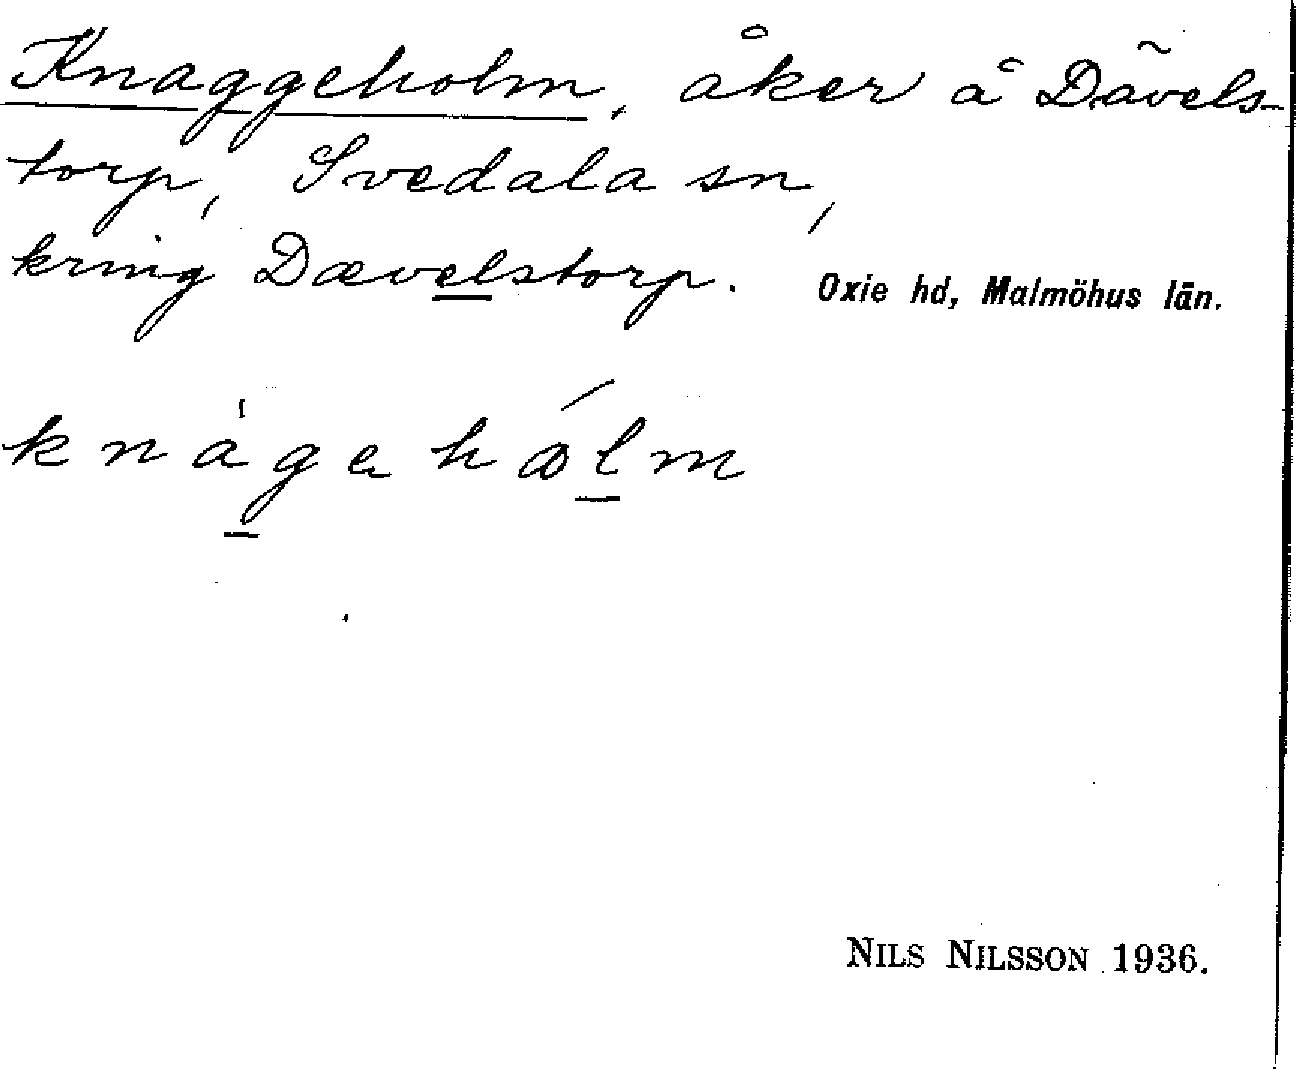 Knaggeholm, åker å Dävels-
torp, Svedala sn,
kring Dævelstorp. Oxie hd, Malmöhus län.
knágehólm
NILS NILSSON 1936.